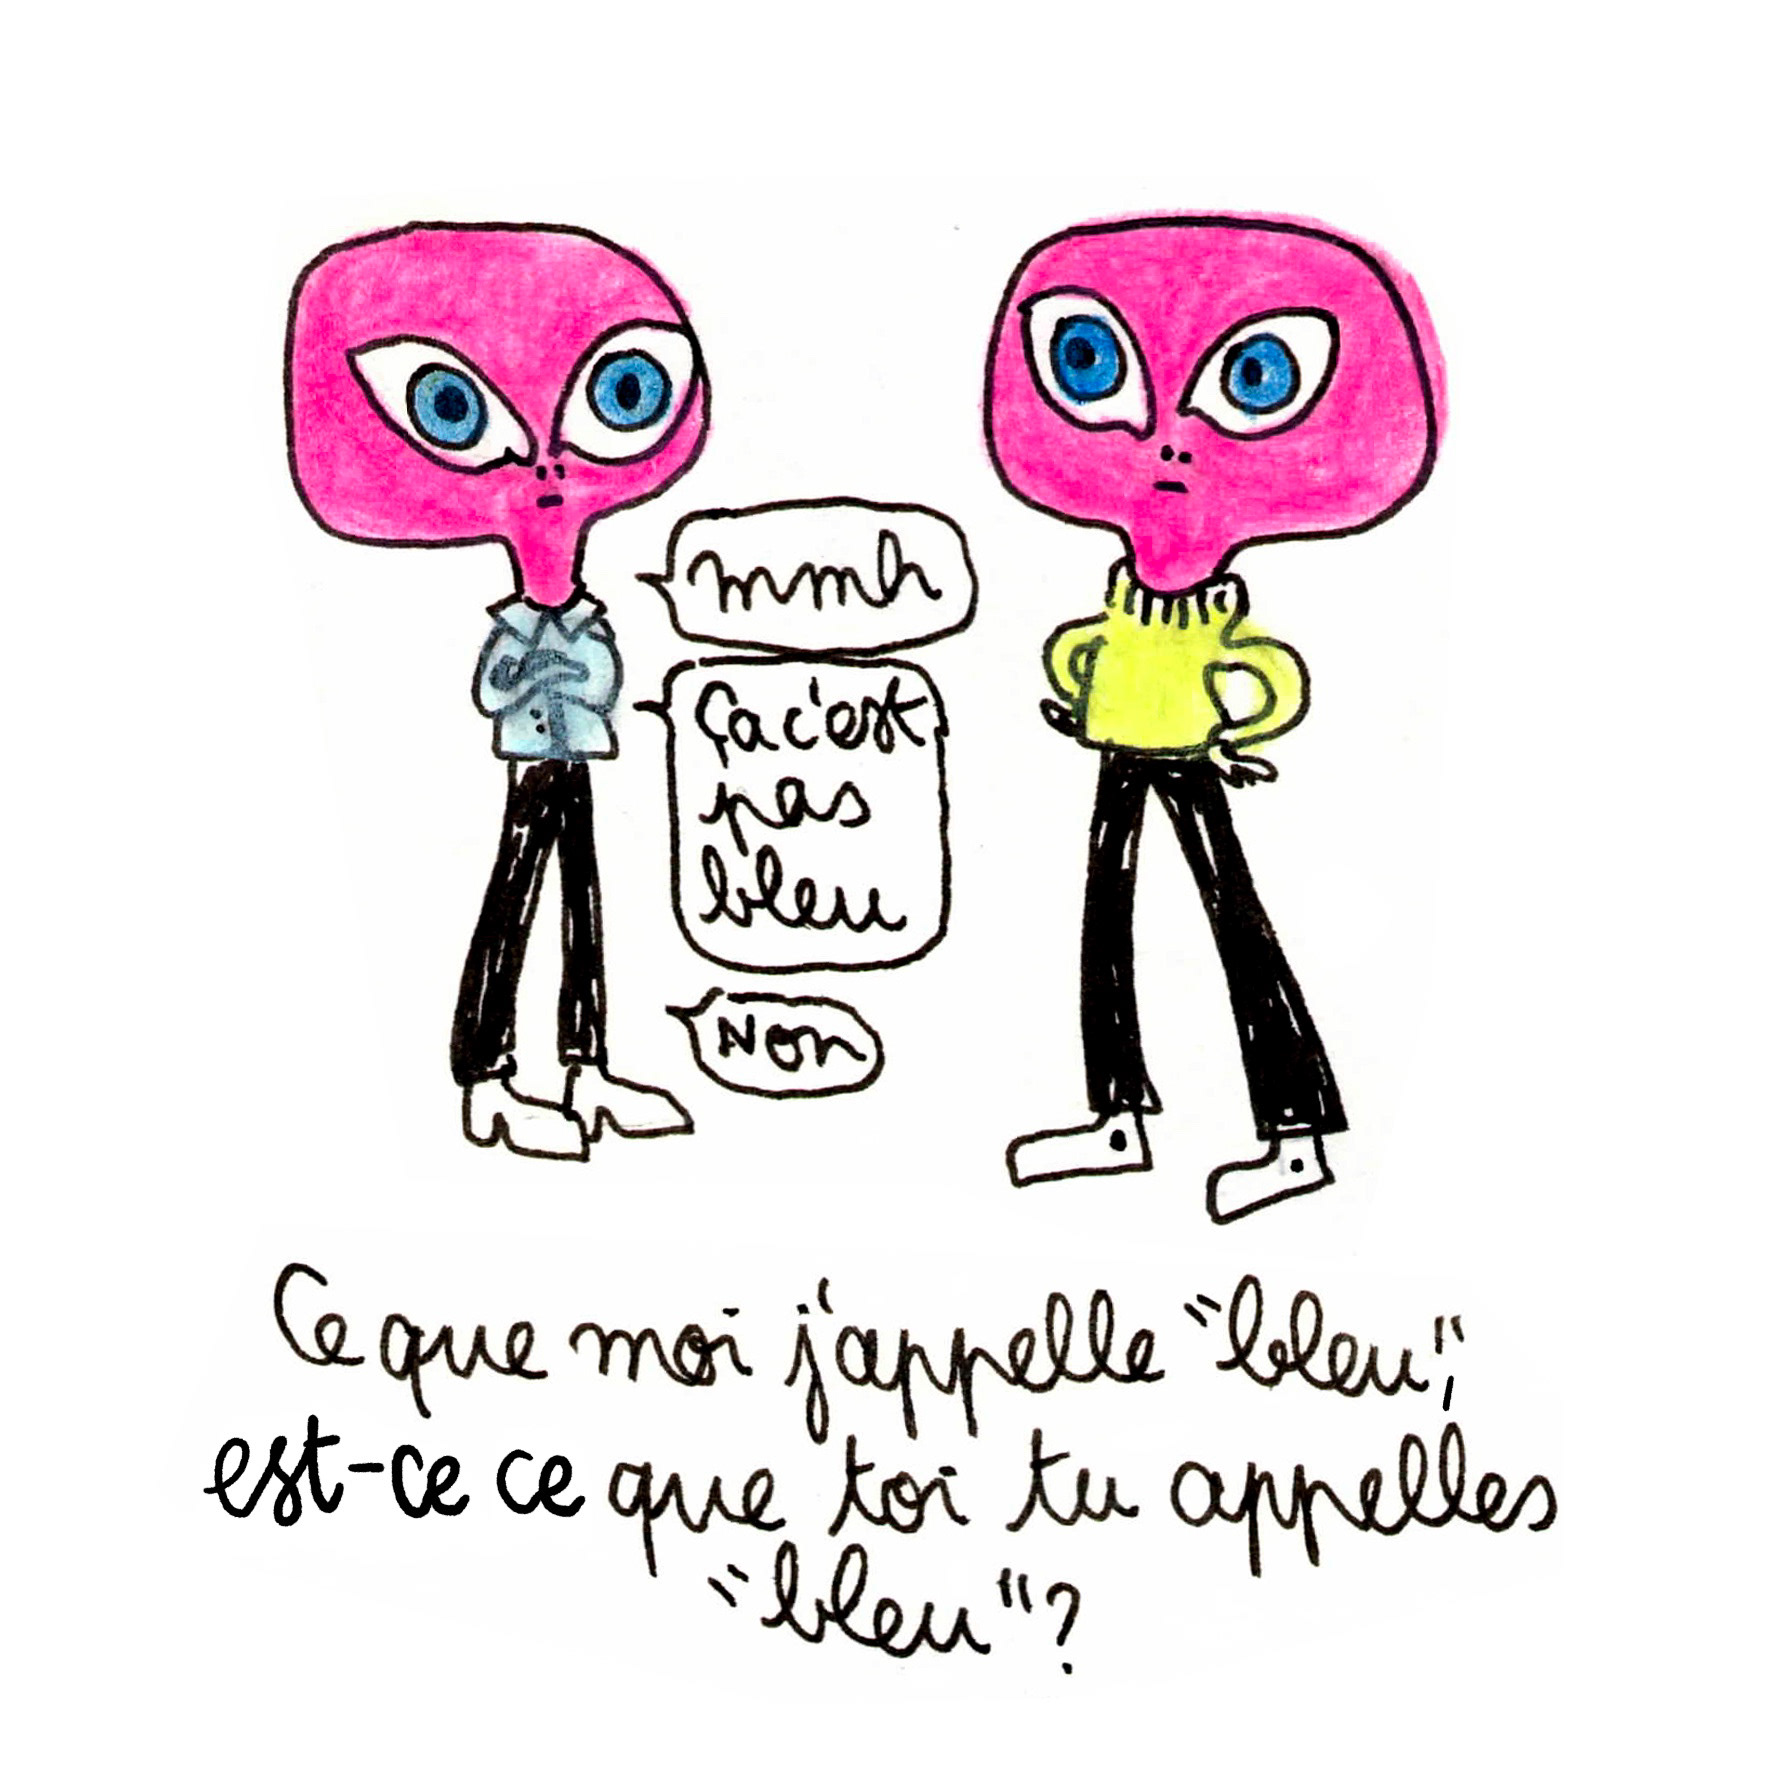 mmh
Ça c'est
pas
bleu
Non
Ce que moi j'appelle "bleu",
est-ce ce que toi tu appelles
"bleu"?